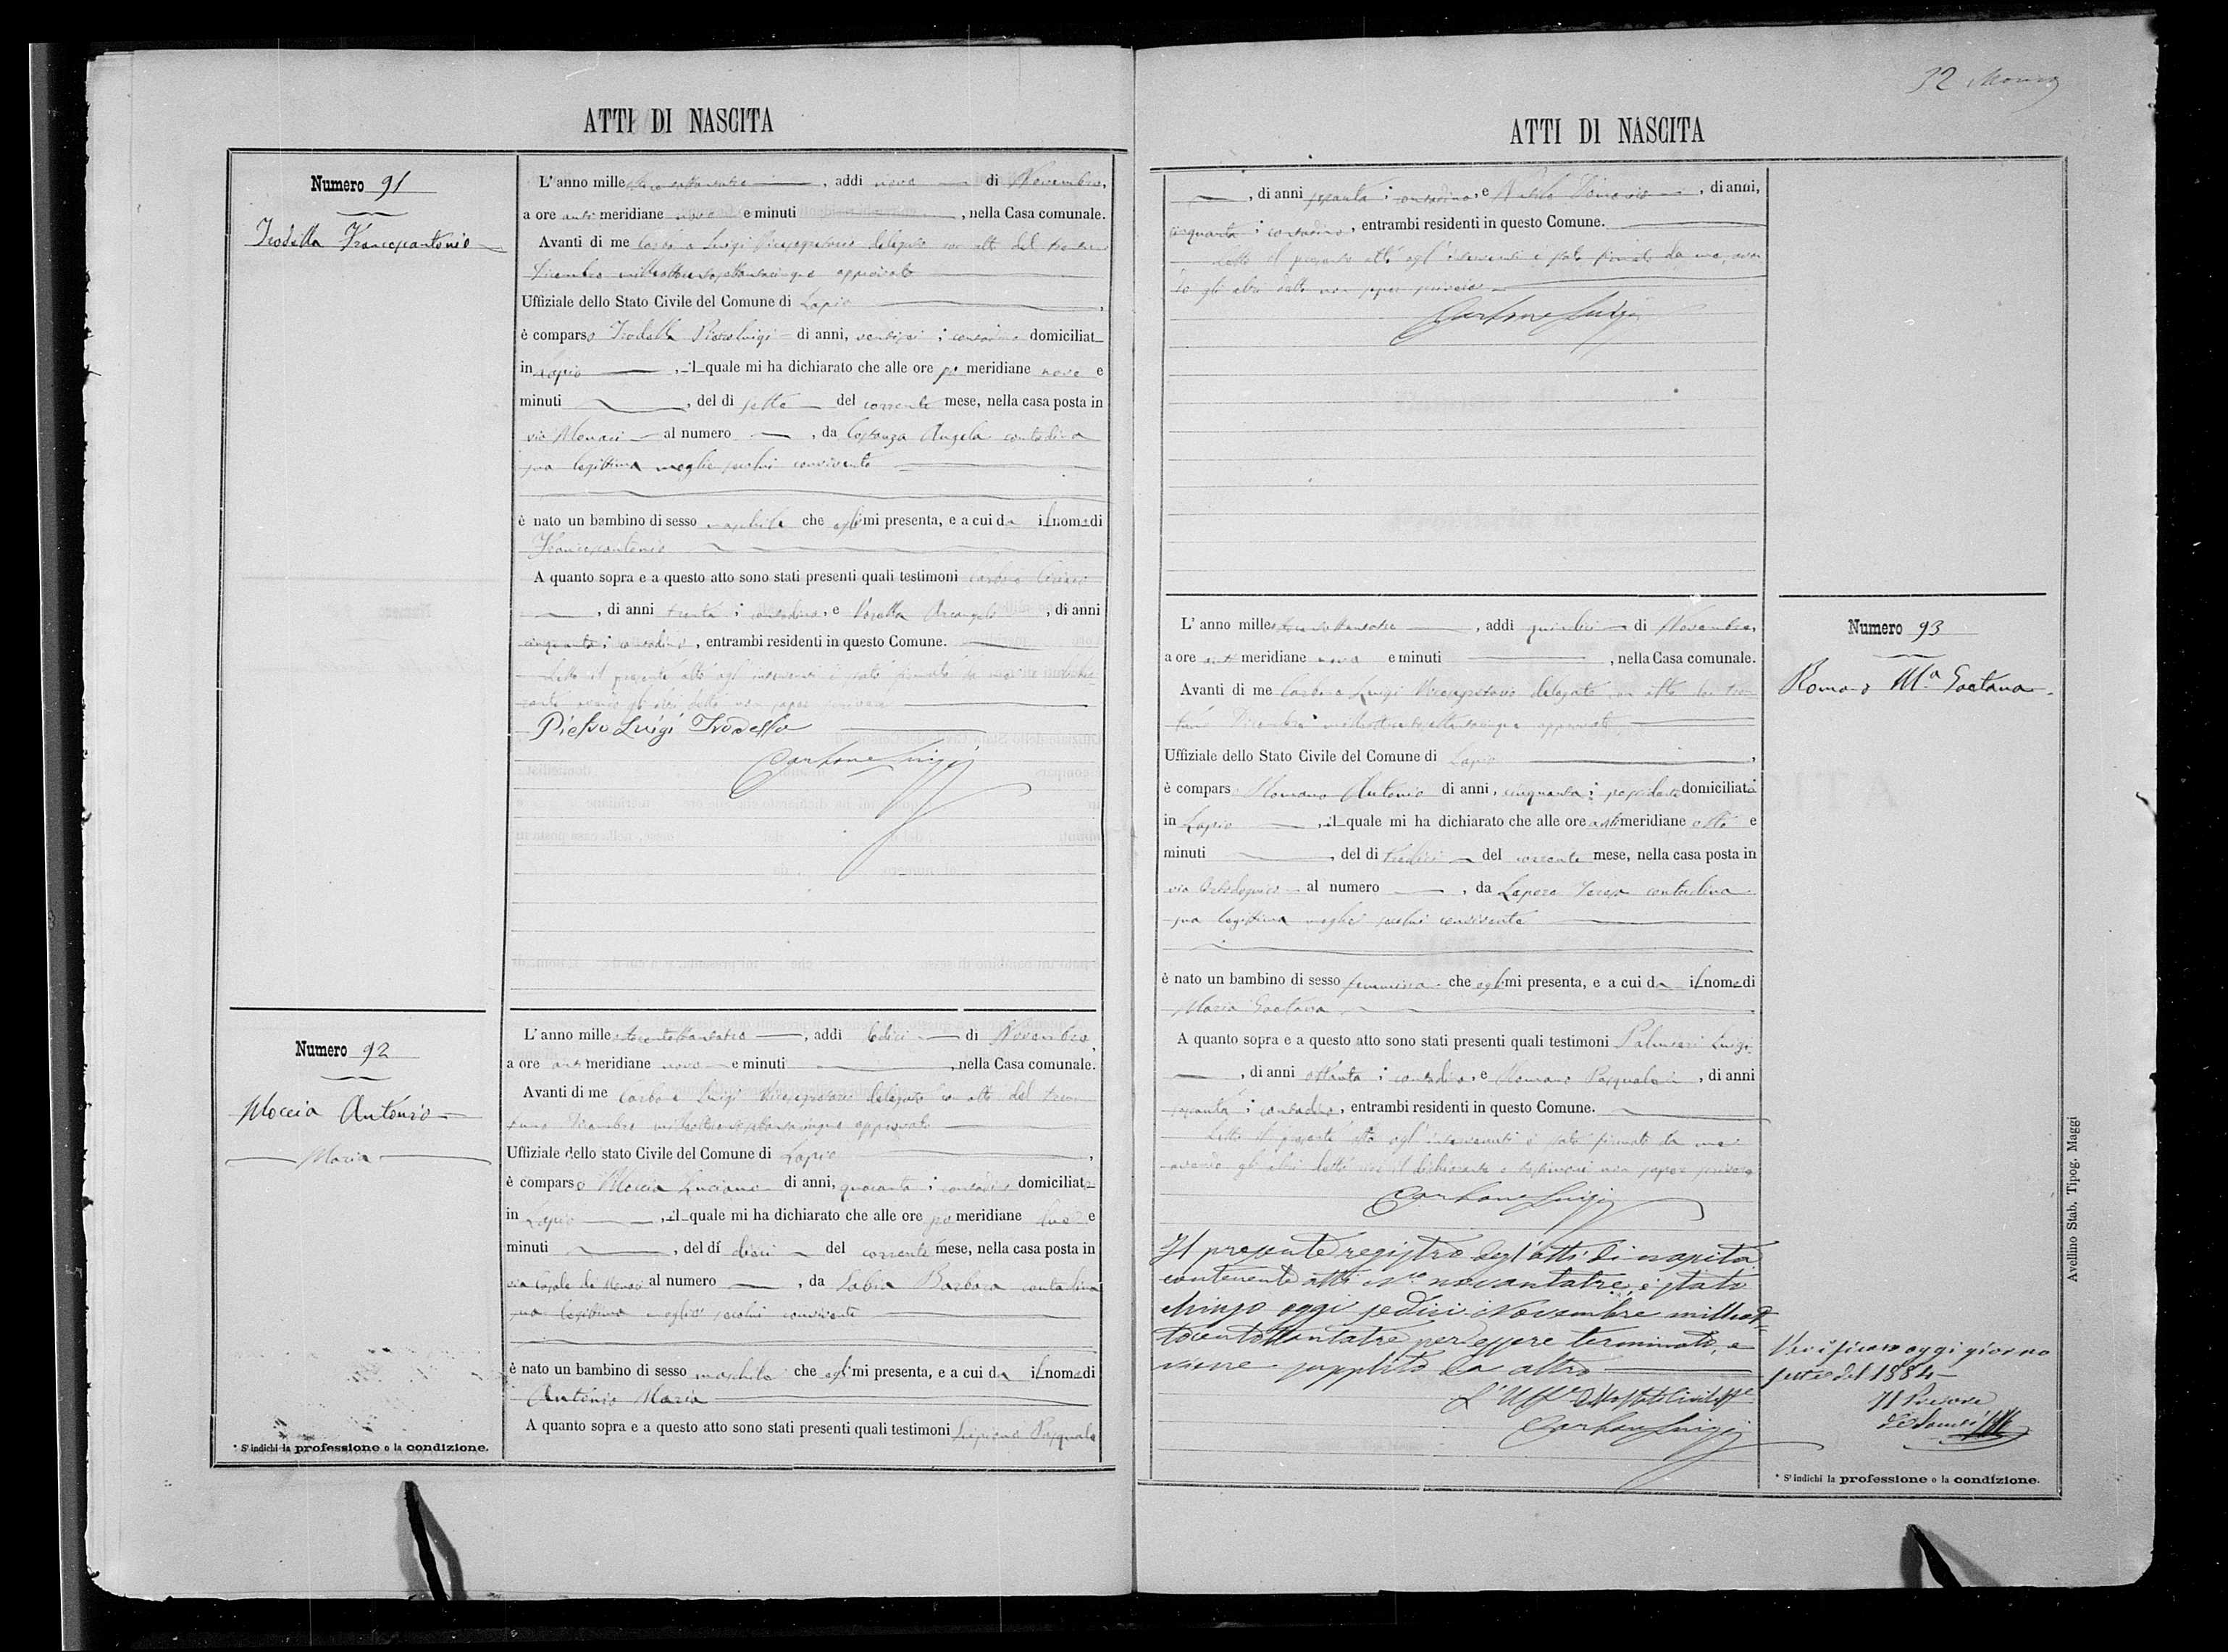 ATTI DI NASCITA
Numero 91
Trodella Francescantonio
L'anno mille ottocentottantatre, addì nove di Novembre,
a ore anti meridiane nove e minuti , nella Casa comunale.
Avanti di me Carbone Luigi Vicesegretario delegato con atto del trentuno
Dicembre milleottocentosettantacinque approvato
Uffiziale dello Stato Civile del Comune di Lapio
è comparso Trodella Pietro Luigi di anni, ventisei ; contadino domiciliat
in Lapio , il quale mi ha dichiarato che alle ore po meridiane nove e
minuti , del dì sette del corrente mese, nella casa posta in
via Monaci al numero , da Costanza Angela contadina
sua legittima moglie secolui convivente
è nato un bambino di sesso maschile che egli mi presenta, e a cui da il nome di
Francescantonio
A quanto sopra e a questo atto sono stati presenti quali testimoni Carbone
, di anni trenta ; contadino, e Arcangelo , di anni
cinquanta ; contadino, entrambi residenti in questo Comune.
Letto il presente atto agl'intervenuti è stato firmato da me e
avendo gli altri detto non saper scrivere
Pietro Luigi Trodella
Carbone Luigi
Numero 92
Moccia Antonio
Maria
L'anno mille ottocentottantatre, addì dodici di Novembre,
a ore anti meridiane nove e minuti , nella Casa comunale.
Avanti di me Carbone Luigi Vicesegretario delegato con atto del tren
tuno Dicembre milleottocentosettantacinque approvato
Uffiziale dello stato Civile del Comune di Lapio
è comparso Moccia Luciano di anni, quaranta ; contadino domiciliat
in Lapio , il quale mi ha dichiarato che alle ore po meridiane due e
minuti , del dì dieci del corrente mese, nella casa posta in
via al numero , da Barbara contadina
sua legittima moglie secolui convivente
è nato un bambino di sesso maschile che egli mi presenta, e a cui da il nome di
Antonio Maria
A quanto sopra e a questo atto sono stati presenti quali testimoni Pasquale
* S'indichi la professione o la condizione.
32
ATTI DI NASCITA
, di anni sessanta ; contadino, e , di anni,
cinquanta ; contadino, entrambi residenti in questo Comune.
Letto il presente atto agl'intervenuti è stato firmato da me, aven
do gli altri detto non saper scrivere
Carbone Luigi
Numero 93
Romano Mª Gaetana
L'anno mille ottocentottantatre, addì quindici di Novembre,
a ore anti meridiane nove e minuti , nella Casa comunale.
Avanti di me Carbone Luigi Vicesegretario delegato con atto del tren
tuno Dicembre milleottocentosettantacinque approvato
Uffiziale dello Stato Civile del Comune di Lapio
è compars Romano Antonio di anni, cinquanta ; possidente domiciliato
in Lapio , il quale mi ha dichiarato che alle ore anti meridiane otto e
minuti , del dì tredici del corrente mese, nella casa posta in
via al numero , da contadina
sua legittima moglie secolui convivente
è nato un bambino di sesso femminino che egli mi presenta, e a cui da il nome di
Maria Gaetana
A quanto sopra e a questo atto sono stati presenti quali testimoni Palmieri Luigi
, di anni ottanta ; contadino, e Romano , di anni
sessanta ; contadino, entrambi residenti in questo Comune.
Letto il presente atto agl'intervenuti è stato firmato da me
avendo gli altri detto non saper scrivere
Carbone Luigi
Il presente registro degl'atti di nascita
contenente atti N.ro novantatre, è stato
chiuso oggi sedici Novembre milleot=
tocentottantatre per essere terminato, e
viene supplito da altro
L'Uff.le dello Stato Civile
Carbone Luigi
Verificato oggi giorno
del 1884
Il Pretore
* S'indichi la professione o la condizione.
Avellino Stab. Tipog. Maggi